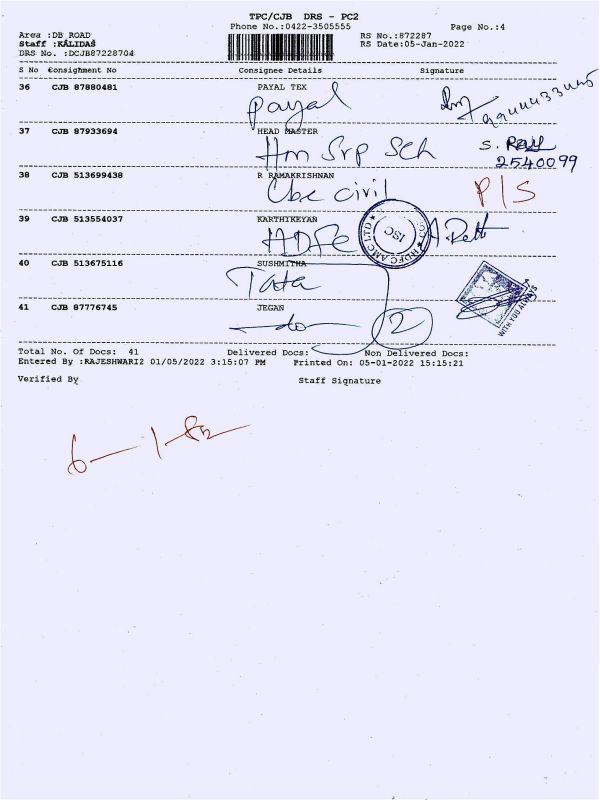 TPC/CJB DRS - PC2
Phone No.:0422-3505555 Page No.:4
Area :DB ROAD RS No.:872287
Staff :KALIDAS RS Date:05-Jan-2022
DRS No. :DCJB87228704
S No Consignment No Consignee Details Signature
36 CJB 87880481 PAYAL TEX
Payal
37 CJB 87933694 HEAD MASTER
Hm Srp Sch S. Ray
2540099
38 CJB 513699438 R RAMAKRISHNAN
Cbe civil P/S
39 CJB 513554037 KARTHIKEYAN
HDFC
HDFC AMC LTD
ISC
40 CJB 513675116 SUSHMITHA
Tata
WITH YOU ALWAYS
41 CJB 87776745 JEGAN
do 2
Total No. Of Docs: 41 Delivered Docs: Non Delivered Docs:
Entered By :RAJESHWARI2 01/05/2022 3:15:07 PM Printed On: 05-01-2022 15:15:21
Verified By Staff Signature